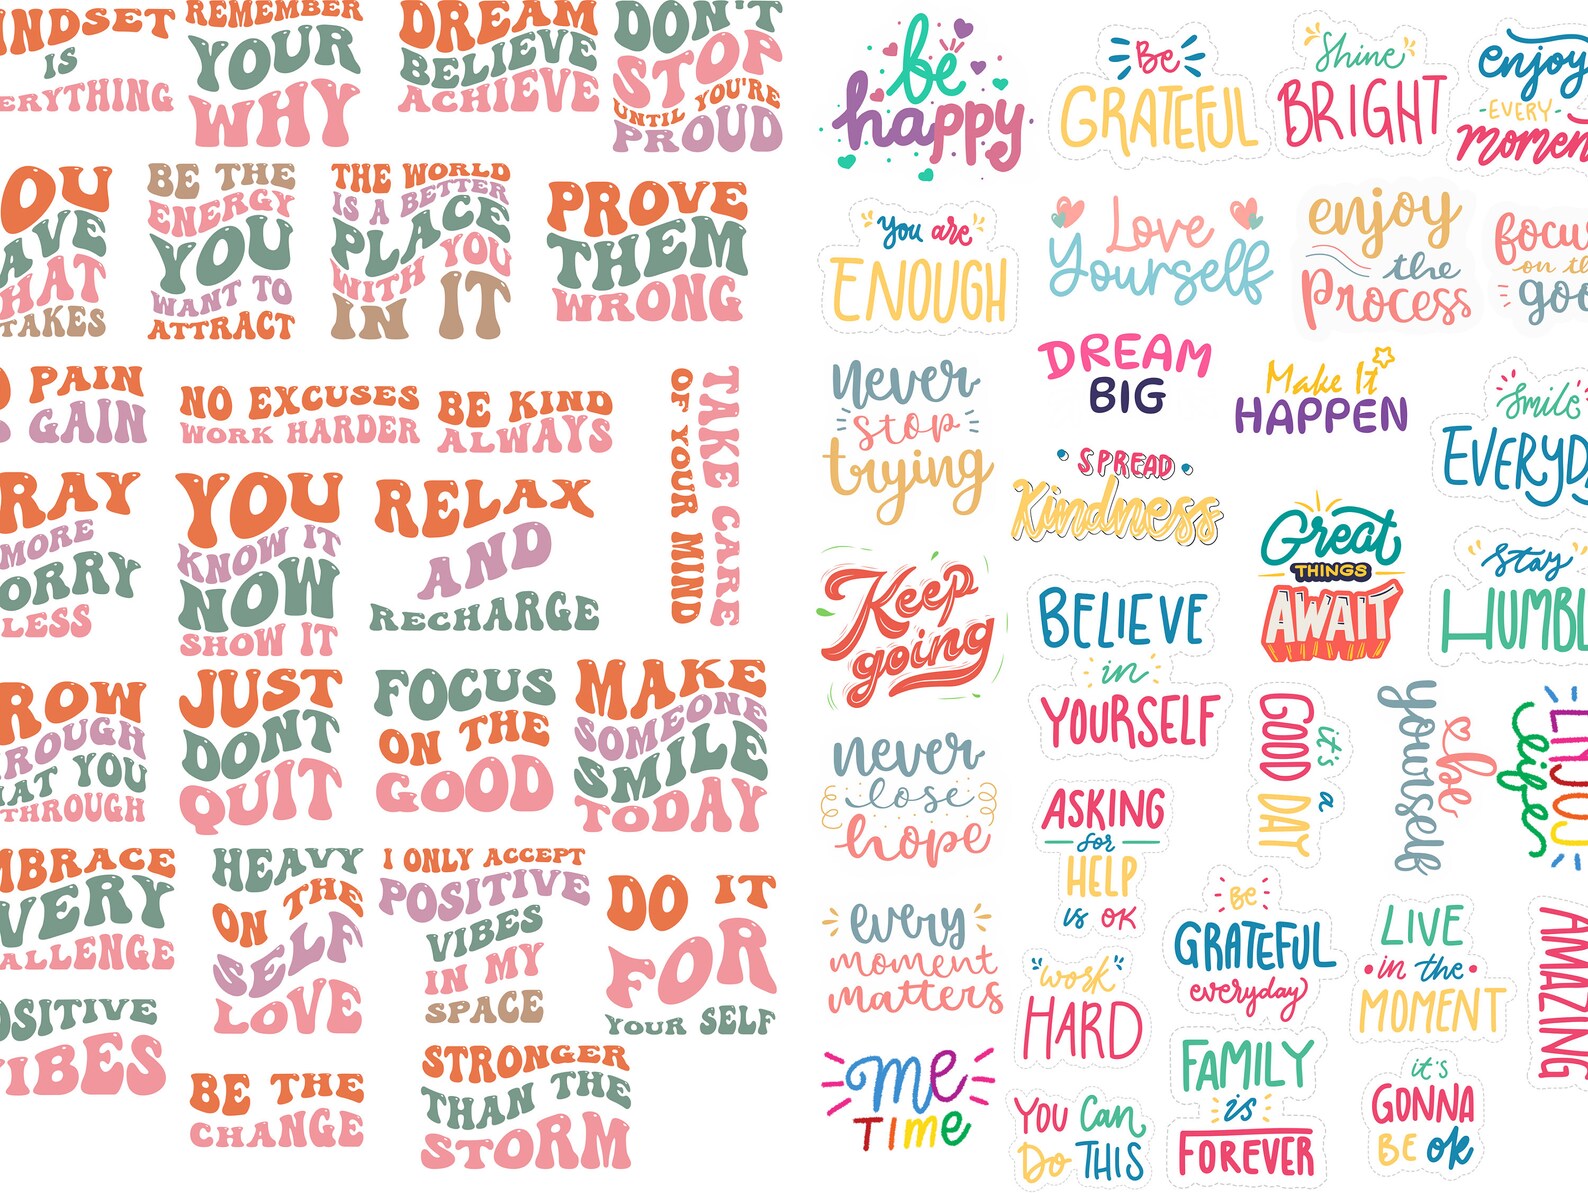 INDSET
IS
ERYTHING
REMEMBER
YOUR
WHY
DREAM
BELIEVE
ACHIEVE
DON'T
STOP
UNTIL YOU'RE
PROUD
OU
AVE
HAT
TAKES
BE THE
ENERGY
YOU
WANT TO
ATTRACT
THE WORLD
IS A BETTER
PLACE
WITH YOU
IN IT
PROVE
THEM
WRONG
PAIN
GAIN
NO EXCUSES
WORK HARDER
BE KIND
ALWAYS
TAKE CARE
OF YOUR MIND
RAY
MORE
ORRY
LESS
YOU
KNOW IT
NOW
SHOW IT
RELAX
AND
RECHARGE
ROW
ROUGH
AT YOU
THROUGH
JUST
DONT
QUIT
FOCUS
ON THE
GOOD
MAKE
SOMEONE
SMILE
TODAY
MBRACE
VERY
ALLENGE
HEAVY
ON THE
SELF
LOVE
I ONLY ACCEPT
POSITIVE
VIBES
IN MY
SPACE
DO IT
FOR
YOUR SELF
OSITIVE
VIBES
BE THE
CHANGE
STRONGER
THAN THE
STORM
be
happy
Be
GRATEFUL
Shine
BRIGHT
enjoy
EVERY
momen
You are
ENOUGH
Love
Yourself
enjoy
the
Process
focu
on th
goo
never
stop
trying
DREAM
BIG
Make It
HAPPEN
Smile
EVERYDA
SPREAD
Kindness
Great
THINGS
AWAIT
Stay
HUMBL
Keep
going
BELIEVE
in
YOURSELF
it's a
GOOD DAY
be
yourself
ENJOY
life
never
lose
hope
ASKING
for
HELP
is OK
every
moment
matters
"work"
HARD
BE
GRATEFUL
everyday
LIVE
in the
MOMENT
AMAZING
me
TIME
YOU Can
Do THIS
FAMILY
is
FOREVER
it's
GONNA
BE ok